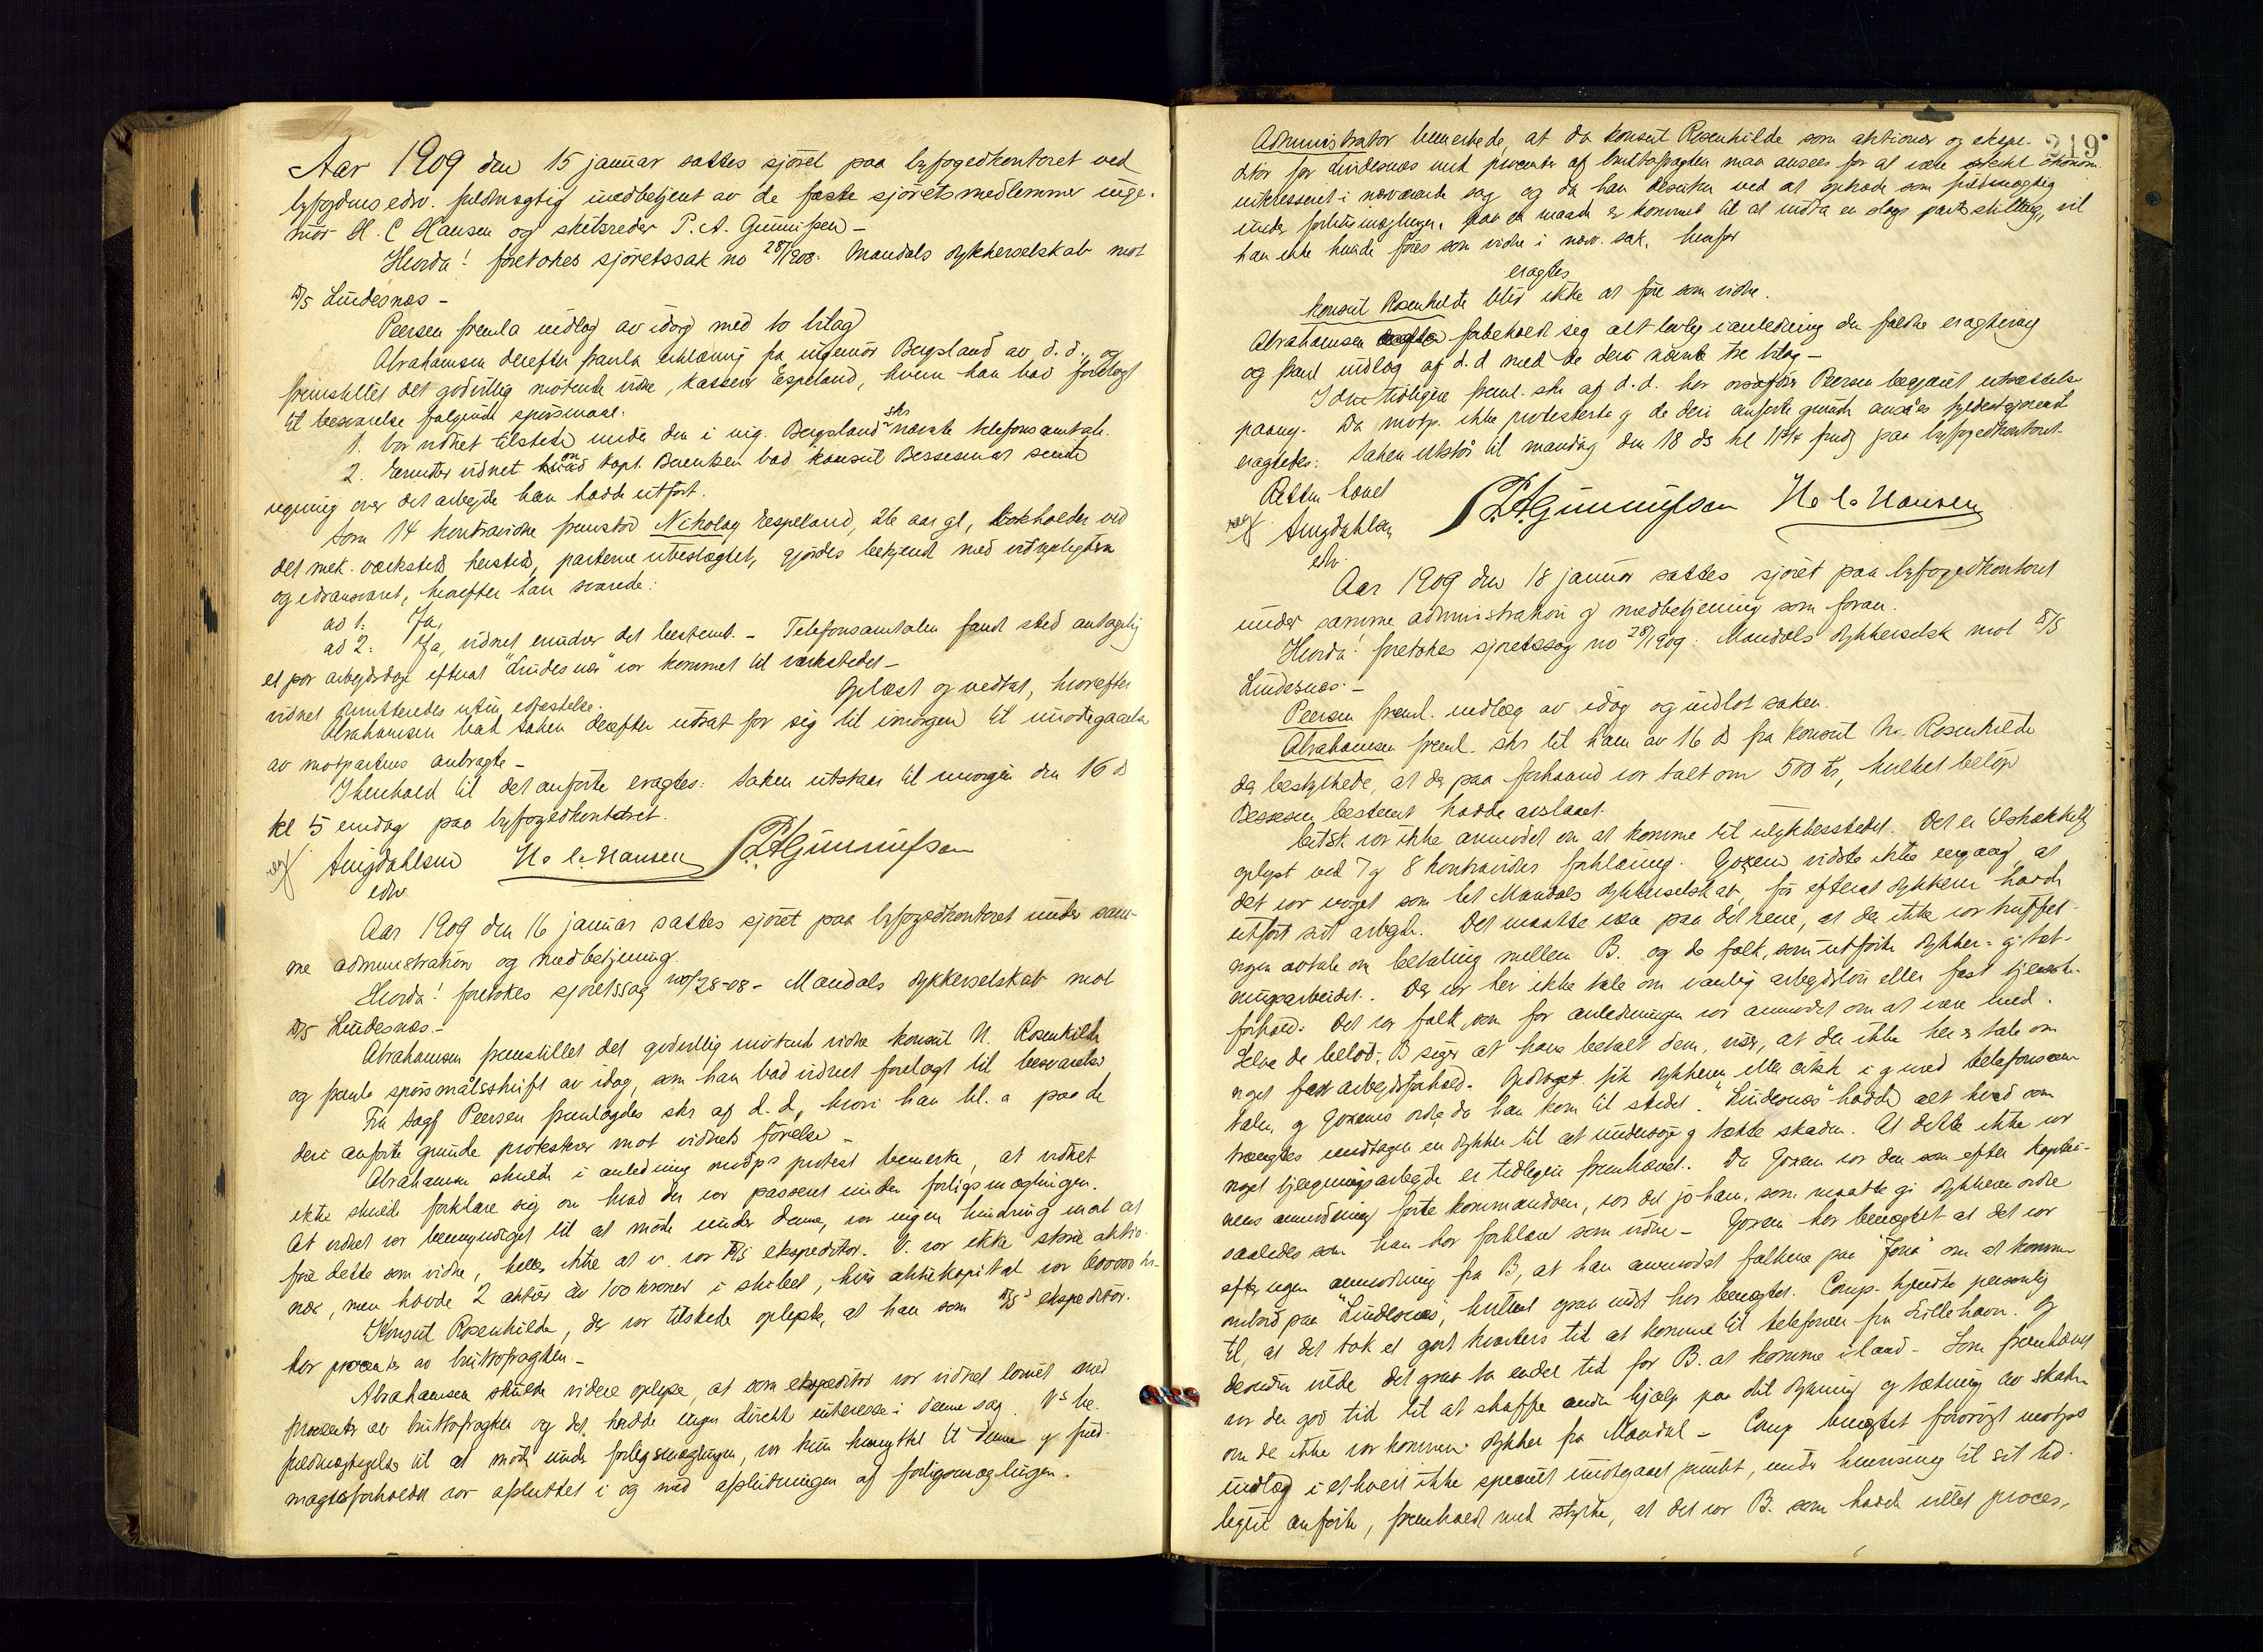 Aar 1909 den 15 januar sattes sjöret paa byfogedkontoret ved
byfogdens edsv. fuldmægtig medbetjent av de faste sjöretsmedlemmer inge-
niör H. C Hansen og skibsreder P. A. Gunnufsen -
Hvorda! foretokes sjöretssak no 28/1908. Mandals dykkerselskab mot
D/S Lindesnæs -
Peersen fremla indlæg av idag med to bilag
Abrahamsen derefter fremla erklæring fra ingeniör Bergsland av d.d. og
fremstillet det godvillig mötende vidne, kasserer Espeland, hvem han bad forelagt
til besvarelse følgende spörsmaal:
1. Var vidnet tilstede under den i ing. Bergslands skr nævnte telefonsamtale.
2. Erindrer vidnet om kapt. Berentsen bad konsul Bessesen at sende
regning over det arbeide han hadde utfört.
Som 14 kontravidne fremstod Nikolay Espeland, 26 aar gl, bokholder ved
det mek. værksted hersteds, parterne ubeslægtet, gjordes bekjendt med vidnepligten
og edsansvaret, hvorefter han svarede:
ad 1. Ja,
ad 2: Ja, vidnet erindrer det bestemt. - Telefonsamtalen fandt sted antagelig
et par arbeidsdage efterat "Lindesnæs" var kommet til værkstedet -
Oplæst og vedtat, hvorefter
vidnet dimitteredes uten edfæstelse.
Abrahamsen bad saken derefter utsat for sig til imorgen til imötegaaelse
av motpartens anbragte -
I henhold til det anförte eragtes: Saken utstaar til imorgen den 16 ds
kl 5 emdag paa byfogedkontoret.
Augdahlsen H. C. Hansen P.A. Gunnufsen
edsv
Aar 1909 den 16 januar sattes sjöret paa byfogedkontoret under sam-
me administration og medbetjening.
Hvorda! foretokes sjöretssag no 28-08 - Mandals dykkerselskab mot
D/S Lindesnæs. -
Abrahamsen fremstillet det godvillig mötende vidne konsul N. Rosenkilde
og fremla spörsmålsskrift av idag, som han bad vidnet forelagt til besvarelse
Fra sagf Peersen fremlagdes skr af d.d, hvori han bl. a paa de
deri anförte grunde protesterer mot vidnets förelse -
Abrahamsen skulde i anledning motp's protest bemerke, at vidnet
ikke skulde forklare sig om hvad der var passeret under forligsmæglingen.
At vidnet var bemyndiget til at möde under denne, var ingen hindring mot at
före dette som vidne, heller ikke at v. var D/S ekspeditör. V. var ikke större aktio-
nær, men havde 2 aktier av 100 kroner i skibet, hvis aktiekapital var 600000 kr. -
Konsul Rosenkilde, der var tilstede oplyste, at han som D/S's ekspeditör.
har procenter av bruttofragten -
Abrahamsen skulde videre oplyse, at som ekspeditör var vidnet lönnet med
procenter av bruttofragten og det hadde ingen direkte interesse i denne sag. V's be-
fuldmægtigelse til at möte under forligsmæglingen, var kun knyttet til denne og fuld-
magtsforholdet var afsluttet i og med afslutningen af forligsmæglingen.
219
Administrator bemerkede, at da konsul Rosenkilde som aktionær og ekspe-
ditör for Lindesnæs med procenter af bruttofragten maa ansees for at være sterkt ökonom.
interesseret i nærværende sag og da han desuten ved at optræde som fuldmægtig
under forliksmæglingen, paa en maade er kommet til at indta en slags partsstilling, vil
han ikke kunde føres som vidne i nærv. sak, hvorfor
eragtes
Konsul Rosenkilde blir ikke at føre som vidne.
Abrahamsen forbeholdt seg alt lovlig i anledning den faldne eragtning
og freml indlæg af d.d med de deri nævnte tre bilag -
I den tidligere freml. skr af d.d. har ovsagförer Peersen begjæret utsættelse
paany. Da motp. ikke protesterte og de deri anførte grunde ansees fyldestgjørende
eragtedes: Saken utstår til mandag den 18 ds kl 11 3/4 fmdg paa byfogedkontoret.
Retten hævet
Augdahlsen P.A. Gunnufsen H. C. Hansen
edsv
Aar 1909 den 18 januar sattes sjöret paa byfogedkontoret
under samme administration og medbetjening som foran.
Hvorda! foretokes sjöretssag no 28/1909: Mandals dykkerselsk mot D/S
Lindesnæs. -
Peersen freml. indlæg av idag og indlot saken.
Abrahamsen freml. skr til ham av 16 ds fra konsul N. Rosenkilde
da bestyrkede, at der paa forhaand var talt om 500 kr, hvilket belöp
Bessesen bestemt hadde avslaaet.
Citsk var ikke anmodet om at komme til ulykkesstedet. Det er tilstrækkelig
oplyst ved 7 og 8 kontravidners forklaring. Goxem vidste ikke engang, at
det var noget som het Mandals dykkerselskab, för efterat dykkeren hadde
utfört sit arbeide. Det maatte være paa det rene, at der ikke var truffet
ngen avtale om betaling mellem B. og de folk, som utförte dykker- og tæt-
ningsarbeidet. Der var her ikke tale om vanlig arbeidslön eller fast tjeneste-
forhold. Det var folk som for anledningen var anmodet om at være med.
Selve de belöb, B siger at have betalt dem, viser, at der ikke her er tale om
noget fast arbeidsforhold. Opdraget fik dykkeren eller citsk i og med telefonsam-
talen og Goxems ordre, da han kom til stedet. "Lindesnæs" hadde alt hvad som
trængtes undtagen en dykker til at undersöge og tætte skaden. At dette ikke var
noget bjergningsarbeide er tidligere fremhævet. Da Goxem var den som efter kaptei-
nens anmodning förte kommandoen, var det jo han, som maatte gi dykkeren ordre
saaledes som han har forklart som vidne - Goxem har benægtet at det var
efter ngen anmodning fra B, at han anmodet folkene paa "Jöra" om at komme
ombord paa "Lindesnæs", hvilket ogsaa vidst har benægtet. Comp. kjendte personlig
til, at det tok et godt kvarters tid at komme til telefonen fra Lillehavn. Og
desuden vilde det ogsaa ta endel tid for B. at komme i land - Som fremhævet
var der god tid til at skaffe anden hjælp paa dit dykning og tætning av skaden
om de ikke var kommen dykker fra Mandal - Comp benægtet forövrigt motps
indlæg i ethvert ikke specielt imötegaaet punkt, under henvisning til sit tid-
ligere anførte, fremholdt med styrke, at det var B. som hadde villet proces,